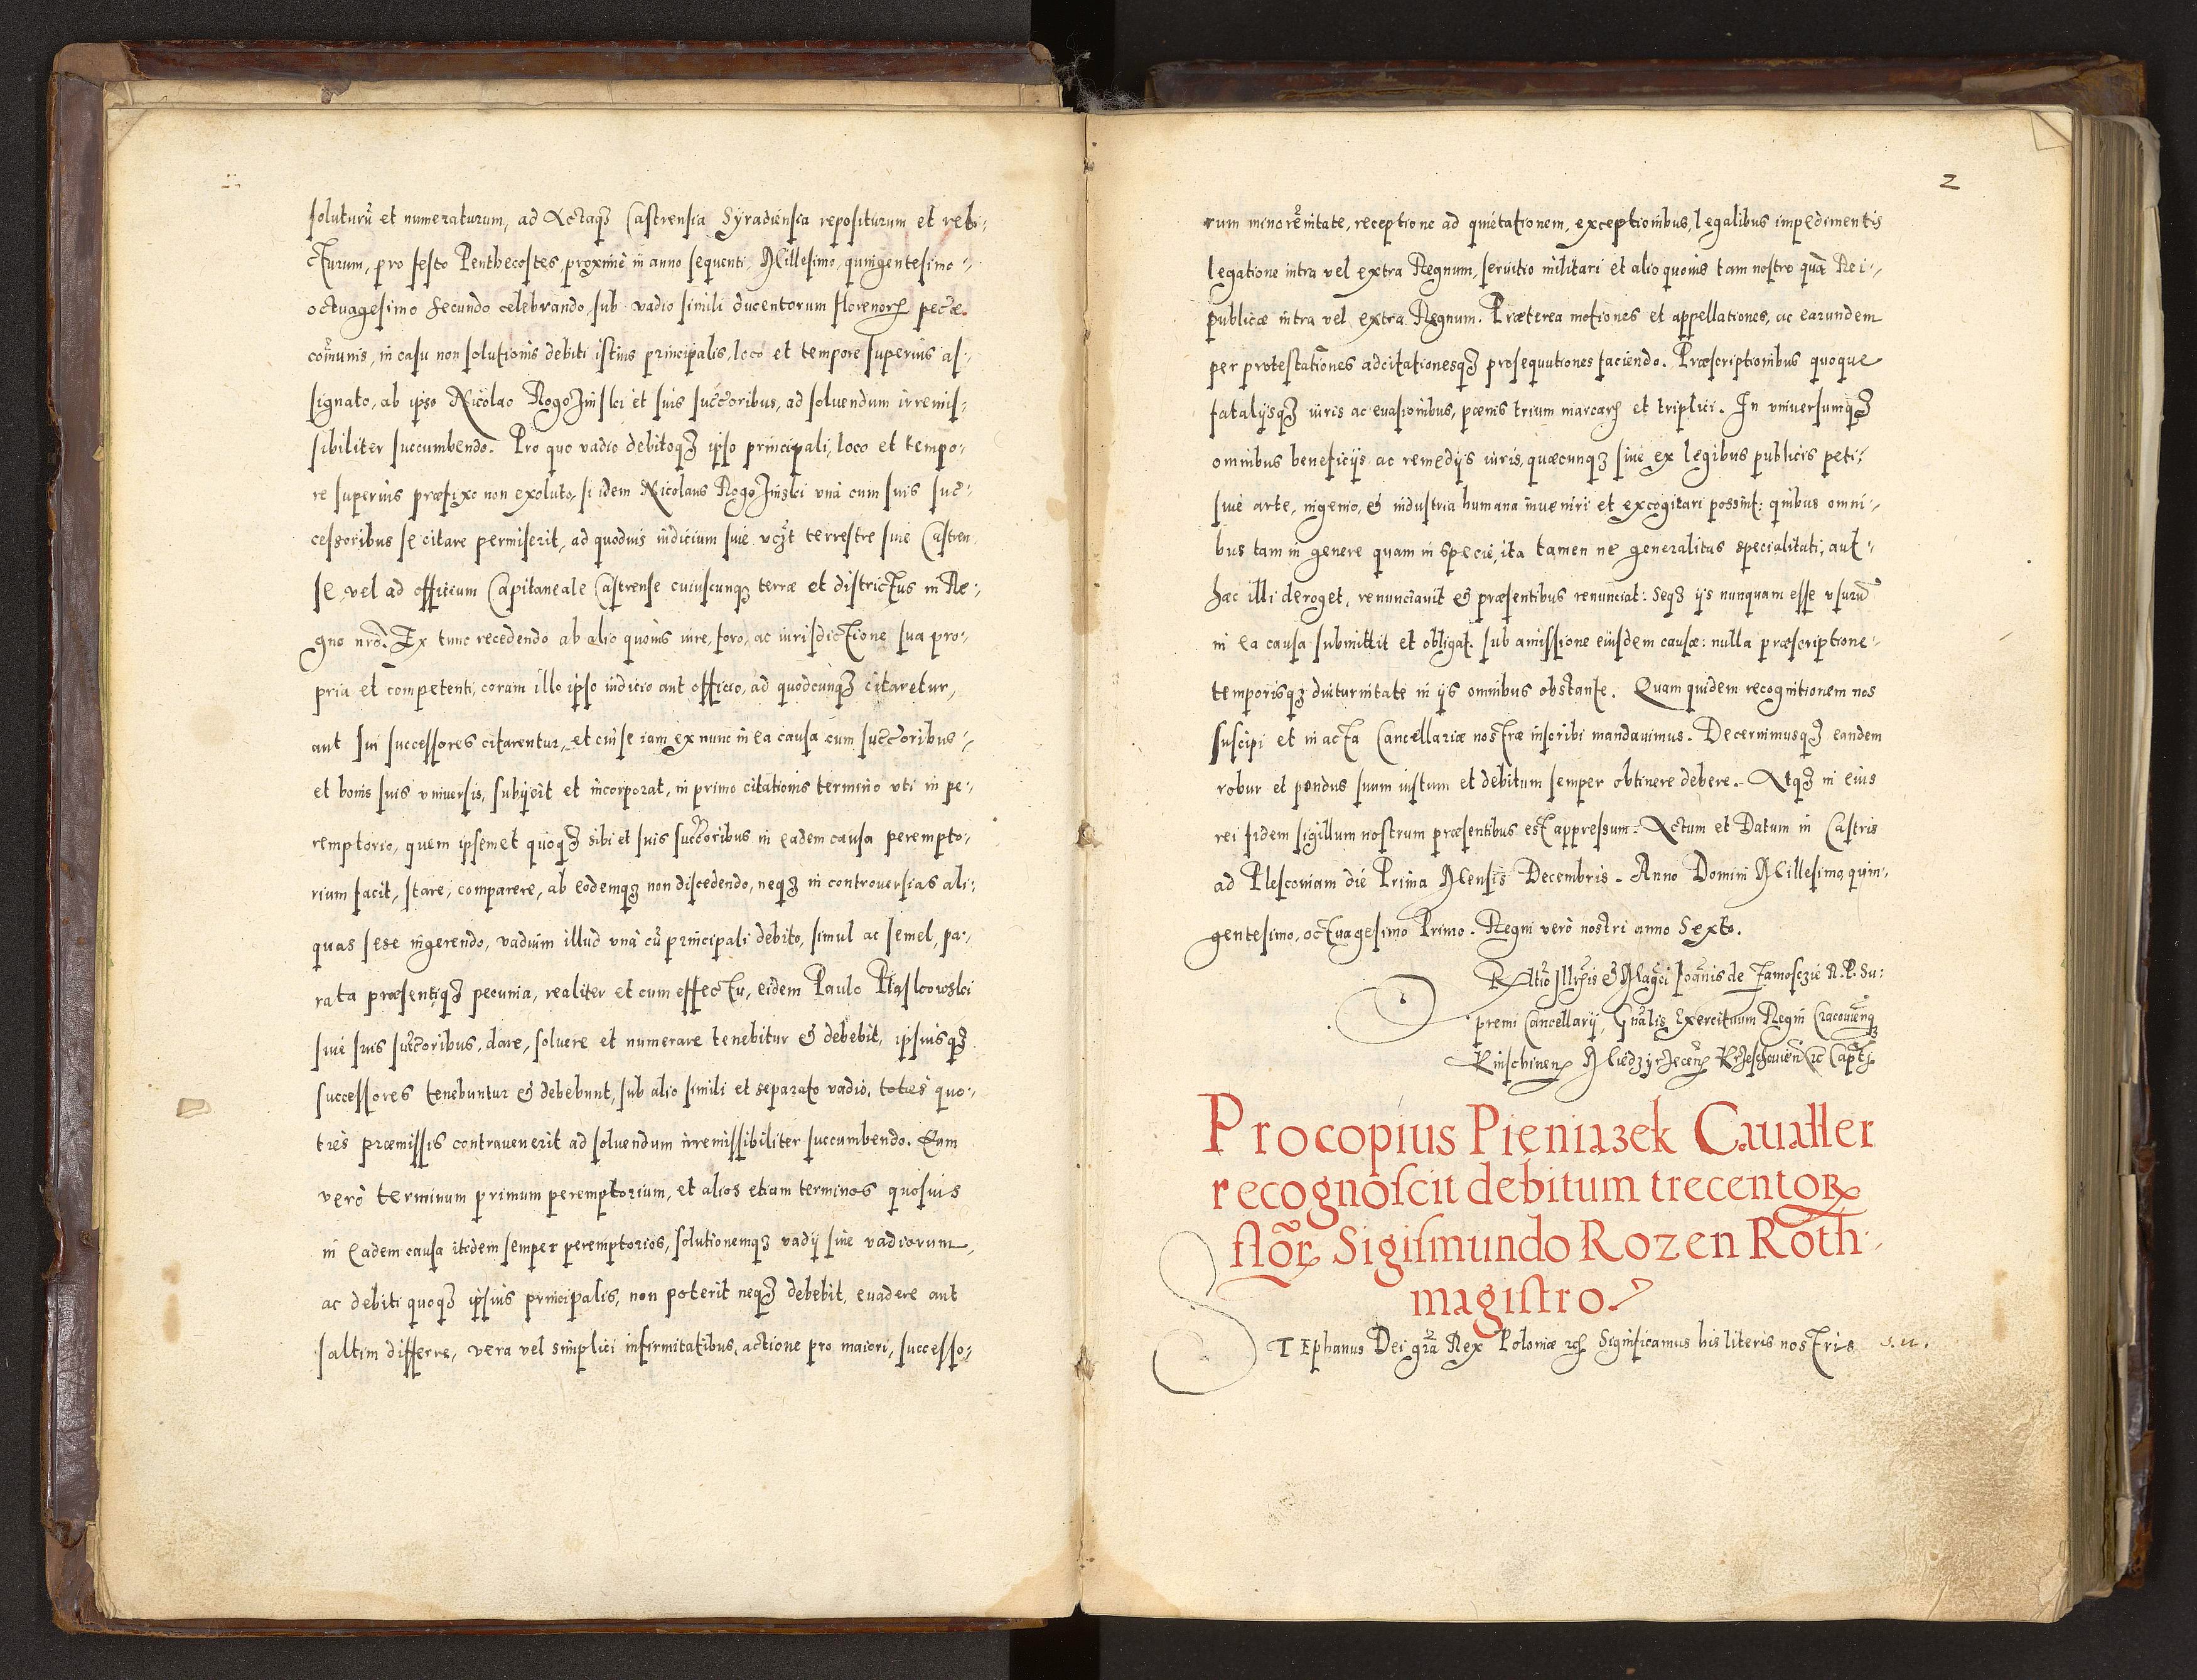 soluturũ et numeraturum, ad Actaqꝫ Castrensia Syradiensia repositurum et reli-
cturum, pro festo Penthecostes, proximè in anno sequenti, Millesimo, quingentesimo-
octuagesimo Secundo celebrando, sub vadio simili ducentorum florenorꝝ pecũæ.
com̃unis, in casu non solutionis debiti istius principalis, loco et tempore superius as-
signato, ab ipso Nicolao Rogozinski et suis succ̃oribus, ad soluendum irremis-
sibiliter succumbendo. Pro quo vadio debitoqꝫ ipso principali, loco et tempo-
re superius præfixo non exoluto, si idem Nicolaus Rogozinski vnà cum suis suc-
cessoribus se citare permiserit, ad quoduis iudicium siue vc̃ꝫt terrestre siue Castren
se, vel ad officium Capitaneale Castrense cuiuscunqꝫ terræ et districtus in Re-
gno nr̃o. Ex tunc recedendo ab alio quouis iure, foro, ac iurisdictione sua pro-
pria et competenti, coram illo ipso iudicio aut officio, ad quodcunqꝫ citaretur,
aut sui successores citarentur, et cui se iam ex nunc in ea causa cum succ̃oribus-
et bonis suis vniuersis, subijcit et incorporat, in primo citationis termino vti in pe-
remptorio, quem ipsemet quoqꝫ sibi et suis succ̃oribus in eadem causa perempto-
rium facit, stare, comparere, ab eodemqꝫ non discedendo, neqꝫ in controuersias ali-
quas sese ingerendo, vadium illud vnà cũ principali debito, simul ac semel, pa-
rata præsentiqꝫ pecunia, realiter et cum effectu, eidem Paulo Piaskowski
siue suis succ̃oribus, dare, soluere et numerare tenebitur & debebit, ipsiusqꝫ
successores tenebuntur & debebunt, sub alio simili et separato vadio, toties quo-
ties præmissis contrauenerit ad soluendum irremissibiliter succumbendo. Eum
verò terminum primum peremptorium, et alios etiam terminos quosuis
in eadem causa itidem semper peremptorios, solutionemqꝫ vadij siue vadiorum,
ac debiti quoqꝫ ipsius principalis, non poterit neqꝫ debebit, euadere aut
saltim differre, vera vel simplici infirmitatibus, actione pro maiori, successo-
2
rum minorẽnitate, receptione ad quietationem, exceptionibus, legalibus impedimentis
legatione intra vel extra Regnum, seruitio militari et alio quouis tam nostro quã Rei-
publicæ intra vel extra Regnum. Præterea motiones et appellationes, ac earundem
per protestationes adcitationesqꝫ prosequutiones faciendo. Præscriptionibus quoque
fatalijsqꝫ iuris ac euasionibus, pœnis trium marcarꝝ et triplici. In vniuersumqꝫ
omnibus beneficijs ac remedijs iuris, quæcunqꝫ siue ex legibus publicis peti,
siue arte, ingenio, & industria humana inueniri et excogitari possint: quibus omni-
bus tam in genere quam in specie, ita tamen ne generalitas specialitati, aut-
hæc illi deroget, renunciauit & præsentibus renunciat: Seqꝫ ijs nunquam esse vsurũ
in ea causa submittit et obligat. sub amissione eiusdem causæ: nulla præscriptione-
temporisqꝫ diuturnitate in ijs omnibus obstante. Quam quidem recognitionem nos
suscipi et in acta Cancellariæ nostræ inscribi mandauimus. Decernimusqꝫ eandem
robur et pondus suum iustum et debitum semper obtinere debere. Atqꝫ in eius
rei fidem sigillum nostrum præsentibus est appressum. Actum et Datum in Castris
ad Plescouiam die Prima Mensis Decembris. Anno Domini Millesimo, quin-
gentesimo, octuagesimo Primo. Regni verò nostri anno Sexto.
Rl̃atio Illr̃is & Mag̃ci Ioãnis de Zamosczie R. P. Su-
premi Cancellarij, Gñalis Exercituum Regni Cracouieñqꝫ
Kinschineñ Miedzyrzeceñ Krzeschouieñ &c Capt̃i.
Procopius Pieniaꝫek Caualler
recognoscit debitum trecentoꝝ
flõrꝝ Sigismundo Rozen Roth-
magistro.
STEphanus Dei gr̃a Rex Poloniæ &c Significamus his literis nostris s. u.